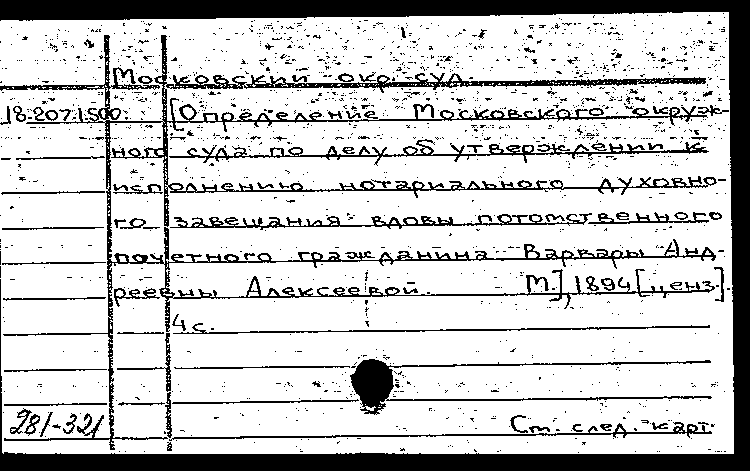 Московский окр. суд.
18.207.1.500. [Определение Московского окруж-
ного суда по делу об утверждении к
исполнению нотариального духовно-
го завещания вдовы потомственного
почетного гражданина Варвары Анд-
реевны Алексеевой. М.], 1894 [ценз.].
4 с.
281-321 Ст. след. карт.